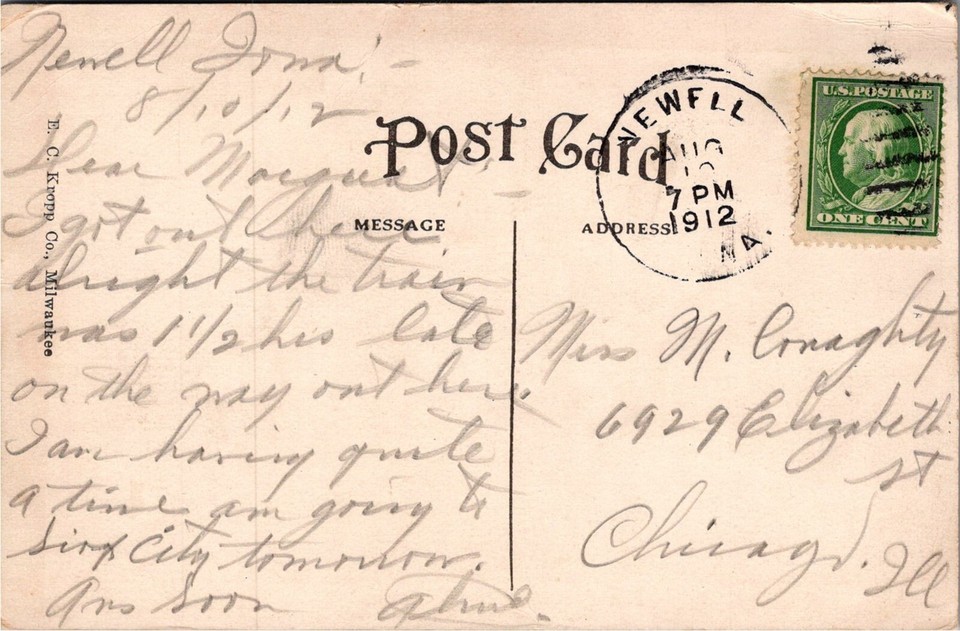 Newell Iowa, -
8/10/12
Dear Margaret -
I got out here
alright the train
was 1 1/2 hrs late
on the way out here
I am having quite
a time am going to
Siox City tomorrow.
Ans Soon
E. C. Kropp Co., Milwaukee
POST CARD
MESSAGE
ADDRESS
NEWELL
AUG
10
7 PM
1912
U.S. POSTAGE
ONE CENT
Miss M. Conaghty
6929 Elizabeth
St
Chicago. Ill